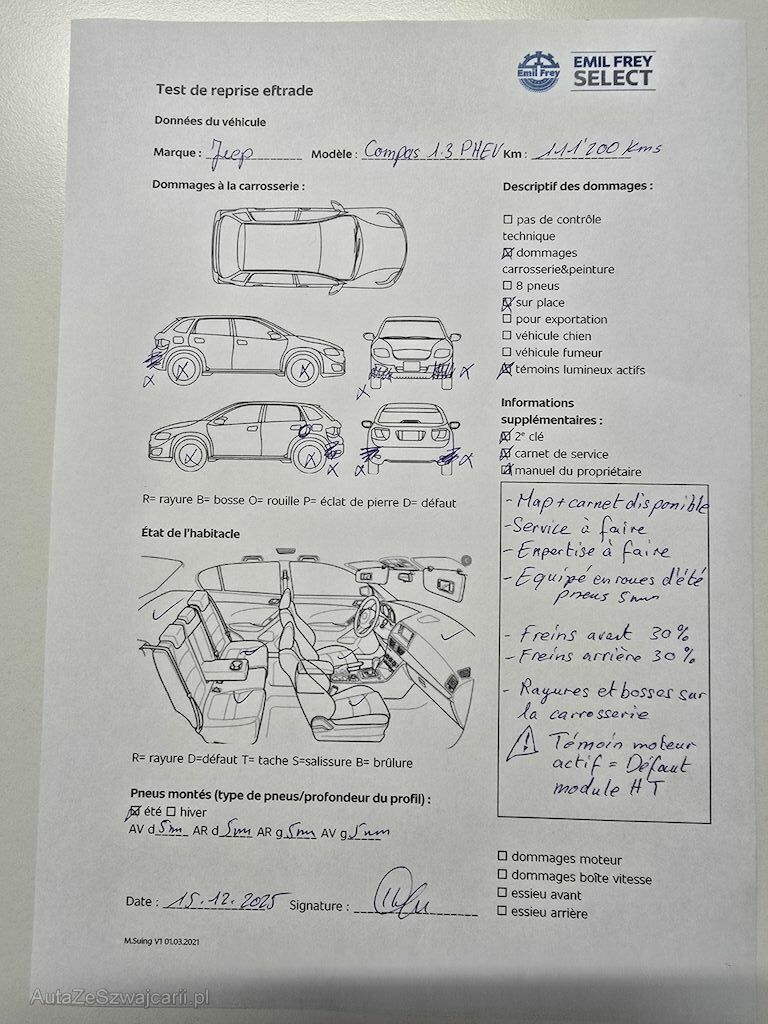 Emil Frey
EMIL FREY
SELECT
Test de reprise eftrade
Données du véhicule
Marque : Jeep Modèle : Compas 1.3 PHEV Km : 111'200 Kms
Dommages à la carrosserie :
Descriptif des dommages :
pas de contrôle
technique
dommages
carrosserie&peinture
8 pneus
sur place
pour exportation
véhicule chien
véhicule fumeur
témoins lumineux actifs
Informations
supplémentaires :
2e clé
carnet de service
manuel du propriétaire
R= rayure B= bosse O= rouille P= éclat de pierre D= défaut
État de l'habitacle
- Map + carnet disponible
- Service à faire
- Expertise à faire
- Equipé en roues d'été
pneus 5mm
- Freins avant 30%
- Freins arrière 30%
- Rayures et bosses sur
la carrosserie
Témoin moteur
actif = Défaut
module HT
R= rayure D=défaut T= tache S=salissure B= brûlure
Pneus montés (type de pneus/profondeur du profil) :
été hiver
AV d 5mm AR d 5mm AR g 5mm AV g 5mm
dommages moteur
dommages boîte vitesse
essieu avant
essieu arrière
Date : 15.12.2025 Signature :
M.Suing V1 01.03.2021
AutaZeSzwajcarii.pl